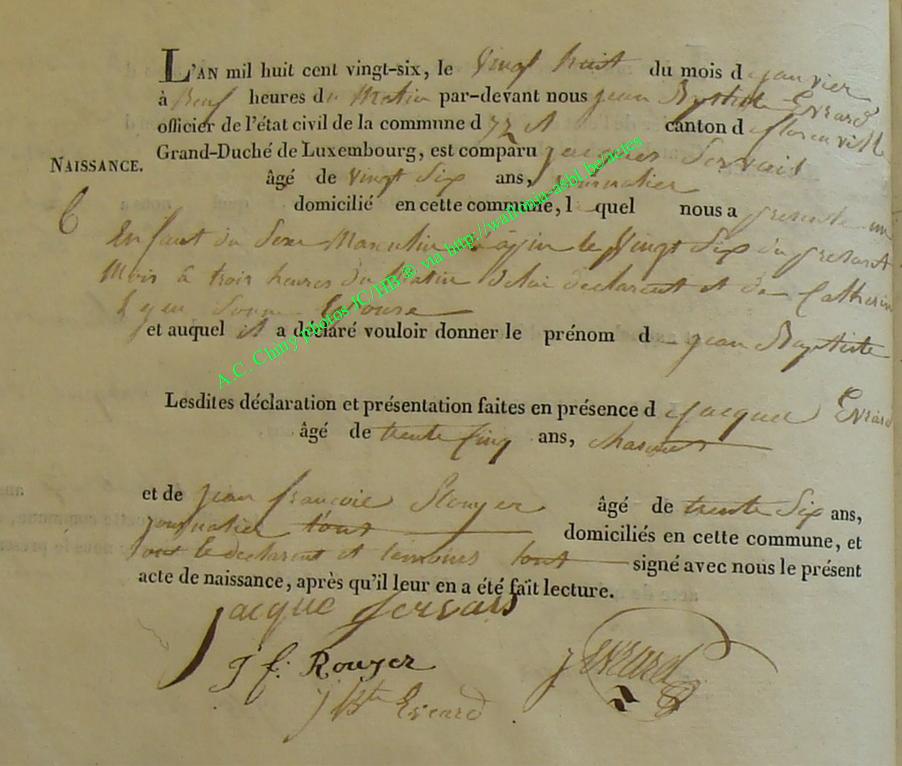 L'AN mil huit cent vingt-six, le vingt huit du mois d janvier
à neuf heures du Matin par-devant nous jean Bptiste Evrard
officier de l'état civil de la commune d canton d florenville
Grand-Duché de Luxembourg, est comparu jacques Servais
NAISSANCE.
âgé de vingt Six ans, journalier
6 domicilié en cette commune, l quel nous a presenté un
Enfant du Sexe Masculin le Vingt Six du present
Mois à trois heures du Matin de lui declarent et de Catherin
Epouse
et auquel il a déclaré vouloir donner le prénom d jean Baptiste
Lesdites déclaration et présentation faites en présence d jacque Evrard
âgé de trente Cinq ans,
et de jean françois âgé de trente Six ans,
journalier tout domiciliés en cette commune, et
ont le declarent et temoins tout signé avec nous le présent
acte de naissance, après qu'il leur en a été fait lecture.
jacque Servais
J f. Rouyer
J Evrard
J Bte Evrard
A.C. Chiny photos IC/HB ® via http://wallonia-asbl.be/actes